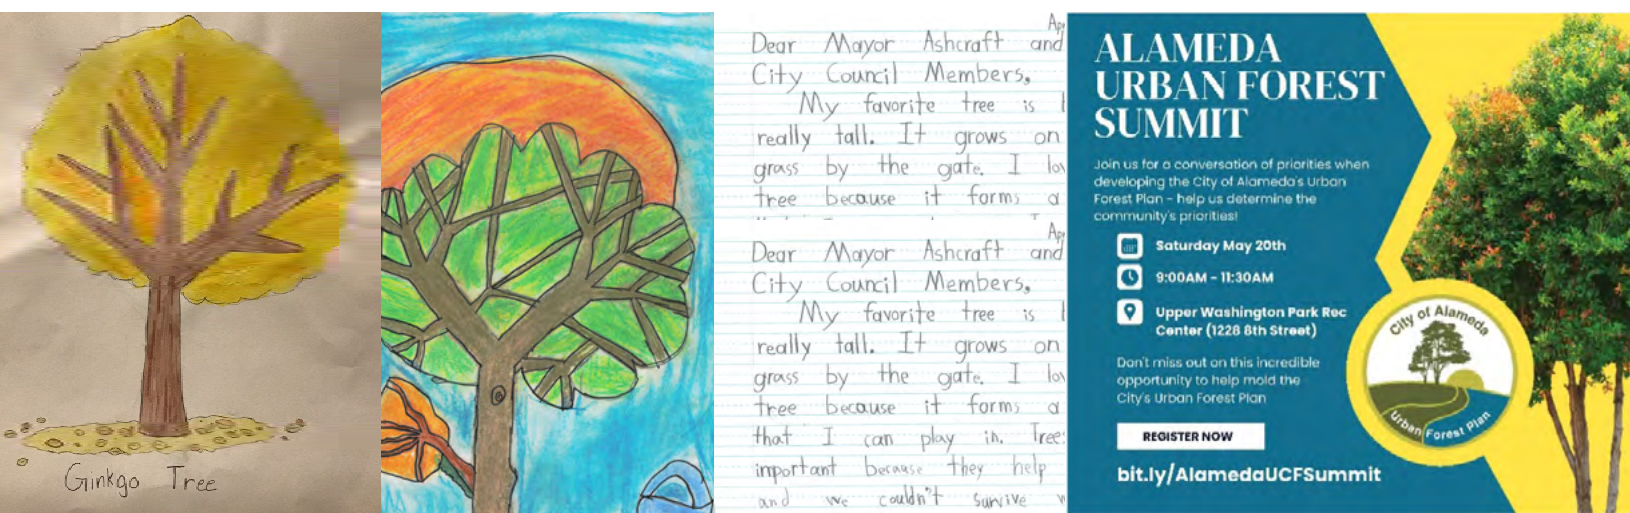 Ginkgo Tree
Dear Mayor Ashcraft and
City Council Members,
My favorite tree is
really tall. It grows on
grass by the gate. I
tree because it forms a
Dear Mayor Ashcraft and
City Council Members,
My favorite tree is
really tall. It grows on
grass by the gate. I
tree because it forms a
that I can play in. Trees
important because they help
and we couldn't survive
ALAMEDA
URBAN FOREST
SUMMIT
Join us for a conversation of priorities when
developing the City of Alameda's Urban
Forest Plan - help us determine the
community's priorities!
Saturday May 20th
9:00AM - 11:30AM
Upper Washington Park Rec
Center (1228 8th Street)
Don't miss out on this incredible
opportunity to help mold the
City's Urban Forest Plan
REGISTER NOW
bit.ly/AlamedaUCFSummit
City of Alameda
Urban Forest Plan